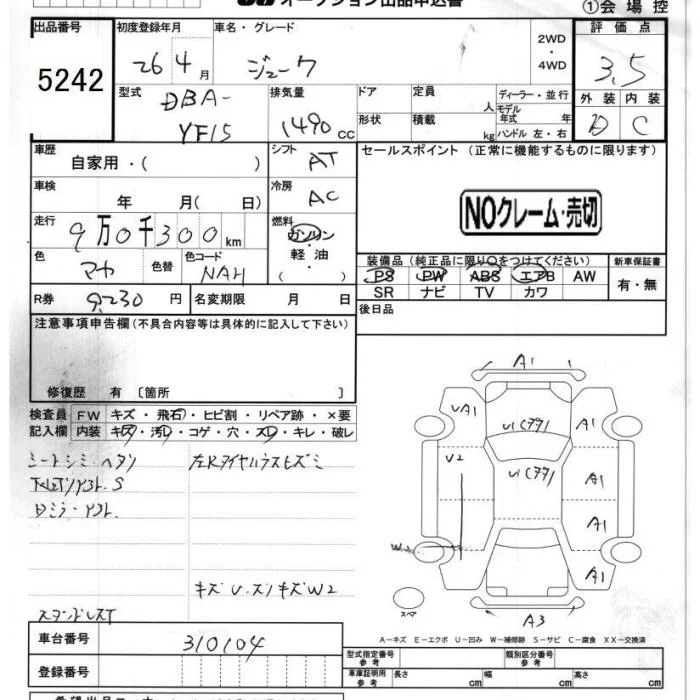 オークション出品申込書
①会場控
出品番号 初度登録年月 車名・グレード 2WD・4WD 評価点
5242
26 4月 ジューク 3.5
型式 排気量 ドア 定員 人 ディーラー・並行
外装 内装
DBA-YF15 1490cc 形状 積載 kg モデル年式 年 ハンドル 左・右
D C
車歴 シフト セールスポイント (正常に機能するものに限ります)
自家用・( ) AT
車検 冷房
年 月( 日) AC
NOクレーム・売切
走行 燃料
9万0千300km ガソリン・軽油・( )
色 色替 色コード 装備品 (純正品に限り○をつけてください) 新車保証書
NAH PS PW ABS エアB AW 有・無
SR ナビ TV カワ
R券 9,230円 名変期限 月 日 後日品
注意事項申告欄 (不具合内容等は具体的に記入して下さい)
修復歴 有 〔箇所 〕
検査員記入欄 FW キズ・飛石・ヒビ割・リペア跡・×要
内装 キズ・汚レ・コゲ・穴・スレ・キレ・破レ
A1
UA1
U2
W2
A1
A1
A1
A3
スペア
A－キズ E－エクボ U－凹み W－補修跡 S－サビ C－腐食 XX－交換済
車台番号 310104
型式指定番号 参考 類別区分番号 参考
登録番号
車庫証明用 参考 長さ cm 幅 cm 高さ cm